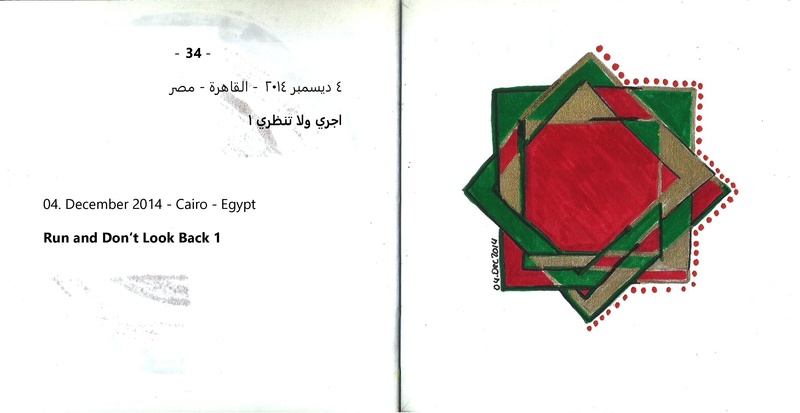 - 34 -
٤ ديسمبر ٢٠١٤ - القاهرة - مصر
اجري ولا تنظري ١
04. December 2014 - Cairo - Egypt
Run and Don't Look Back 1
04.Dec2014